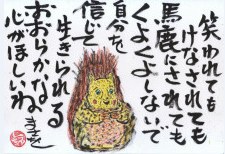 笑われても
けなされても
馬鹿にされても
くよくよしないで
自分を
信じて
生きられる
おおらかな
心がほしいね